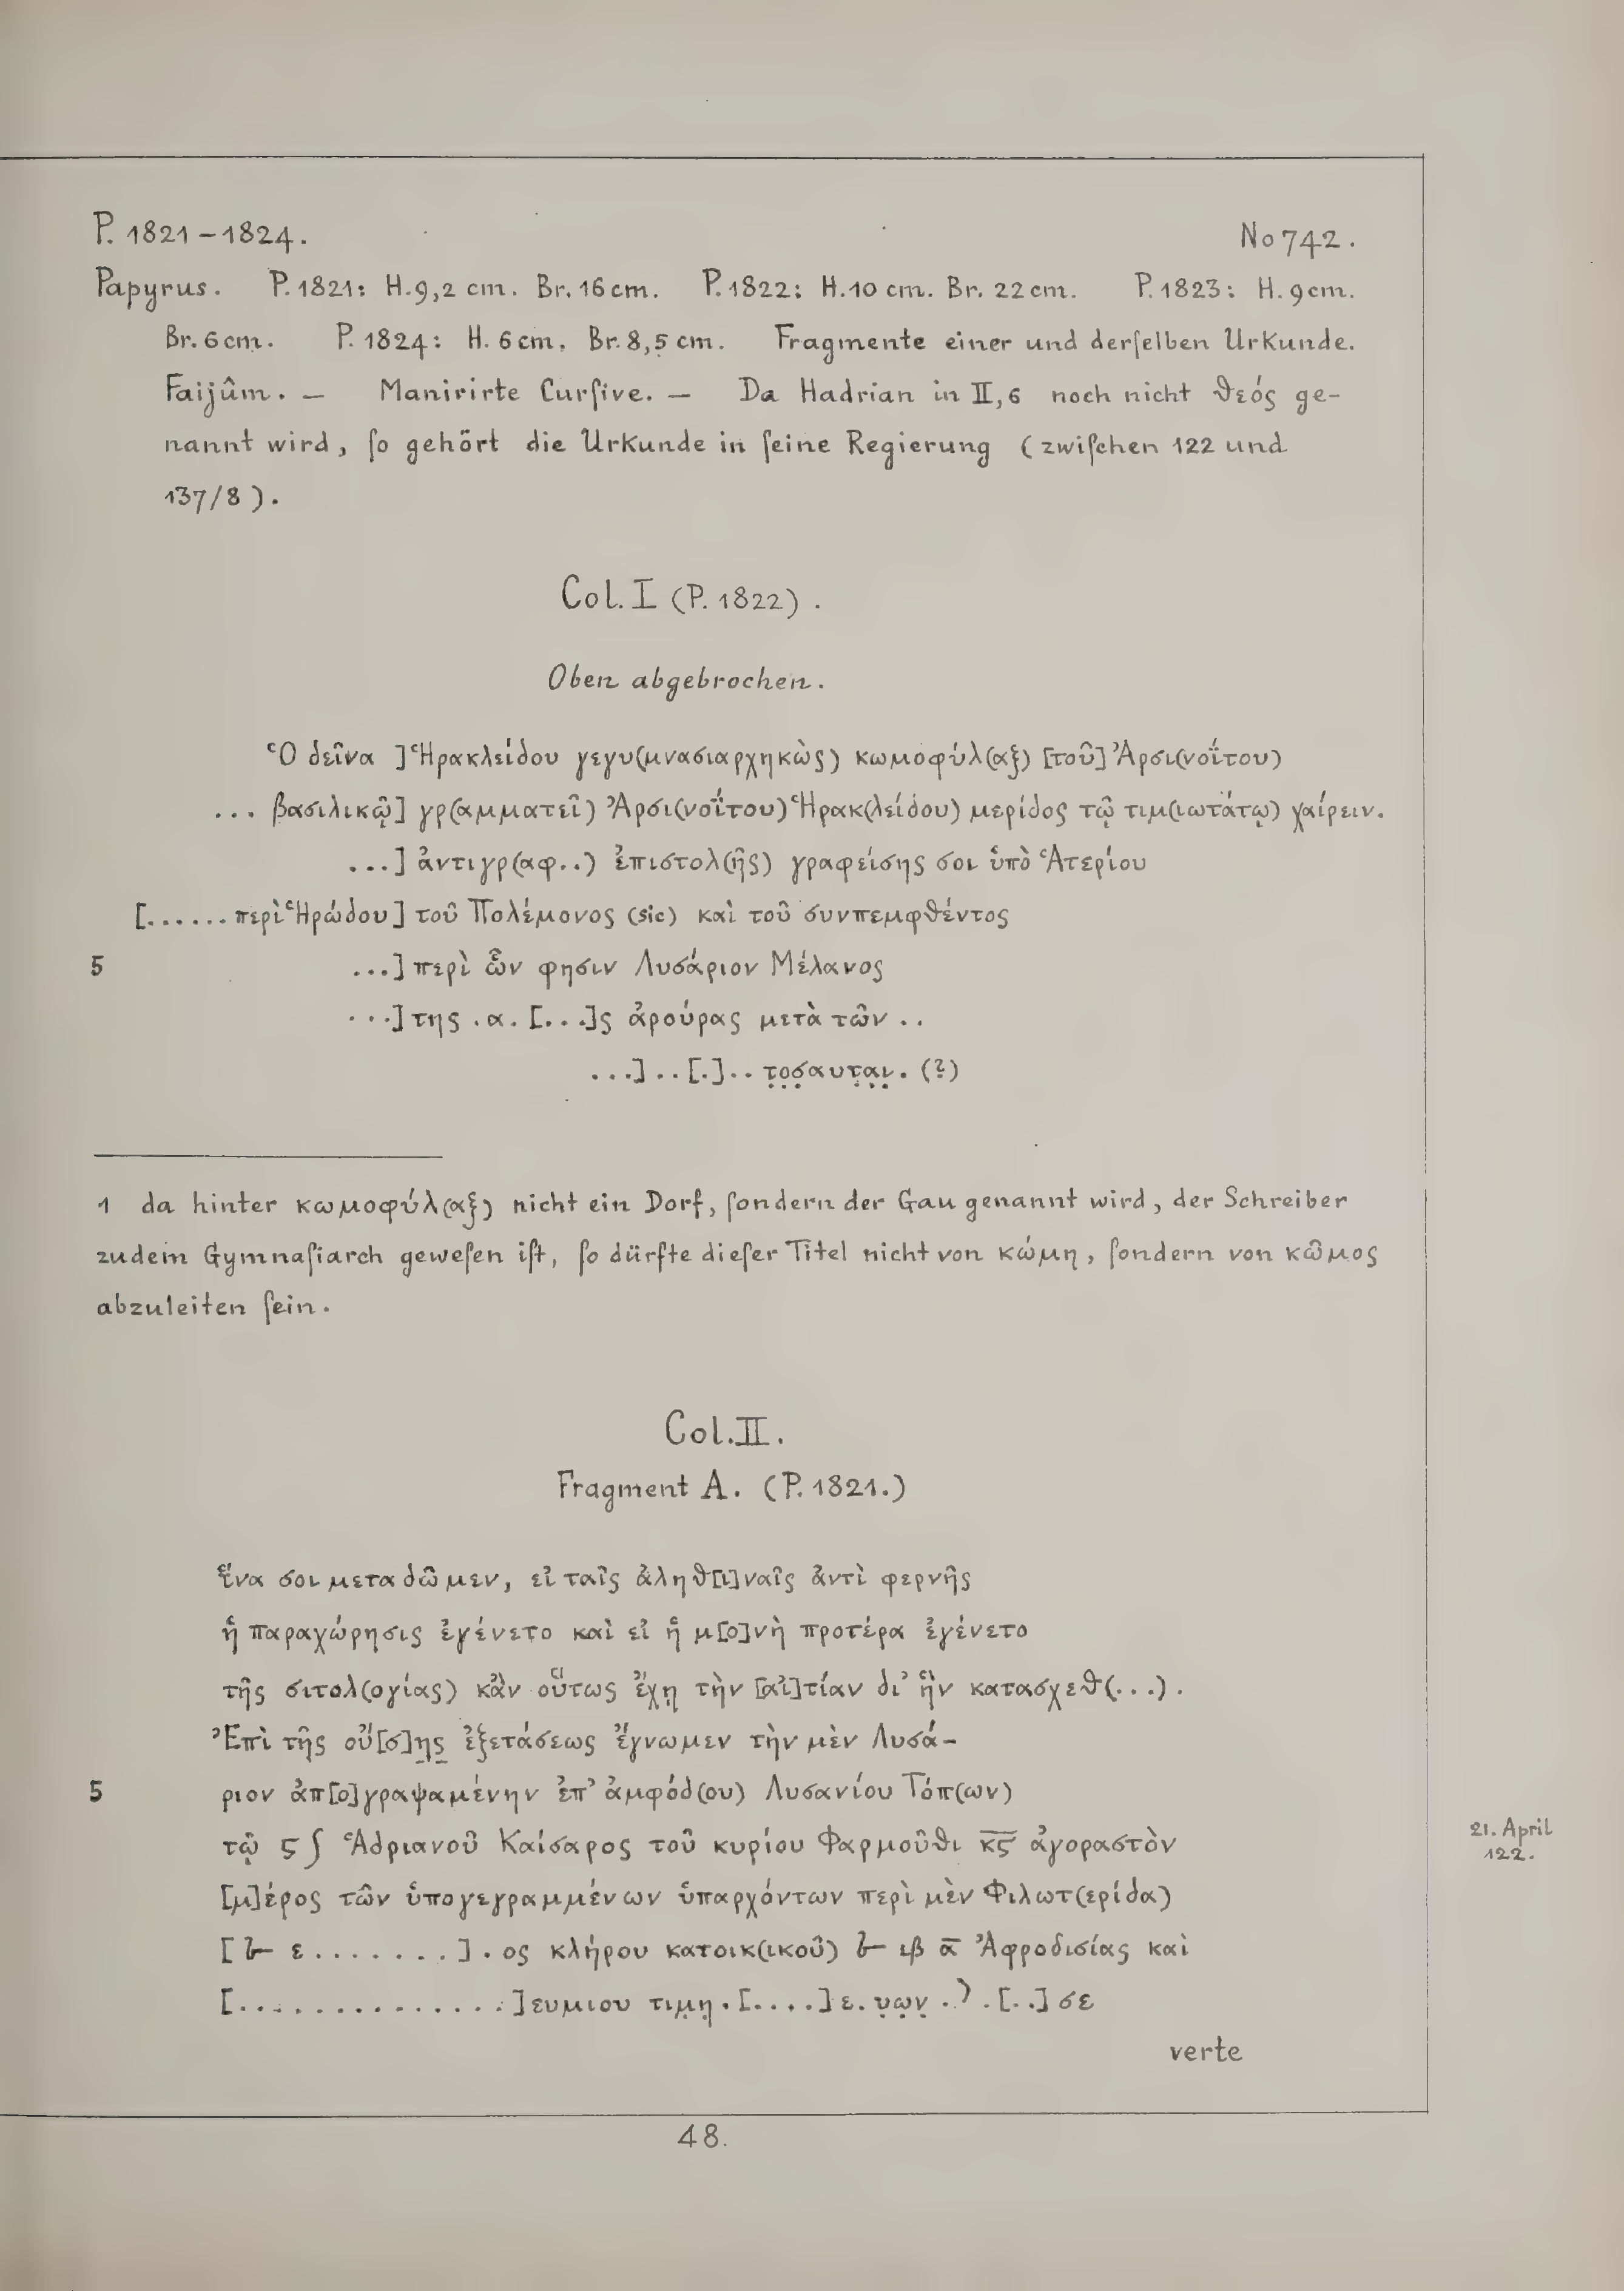 P. 1821–1824. No 742.
Papyrus. P. 1821: H. 9,2 cm. Br. 16 cm. P. 1822: H. 10 cm. Br. 22 cm. P. 1823: H. 9 cm.
Br. 6 cm. P. 1824: H. 6 cm. Br. 8,5 cm. Fragmente einer und derſelben Urkunde.
Faijûm. — Manirirte Curſive. — Da Hadrian in II, 6 noch nicht θεός ge-
nannt wird, ſo gehört die Urkunde in ſeine Regierung (zwiſchen 122 und
137/8).
Col. I (P. 1822).
Oben abgebrochen.
Ὁ δεῖνα ] Ἡρακλείδου γεγυ(μνασιαρχηκὼς) κωμοφύλ(αξ) [τοῦ] Ἀρσι(νοΐτου)
... βασιλικῷ] γρ(αμματεῖ) Ἀρσι(νοΐτου) Ἡρακ(λείδου) μερίδος τῷ τιμ(ιωτάτῳ) χαίρειν.
...] ἀντιγρ(αφ..) ἐπιστολ(ῆς) γραφείσης σοι ὑπὸ Ἁτερίου
[...... περὶ Ἡρώδου] τοῦ Πολέμονος (sic) καὶ τοῦ συνπεμφθέντος
5 ...] περὶ ὧν φησιν Λυσάριον Μέλανος
...] της .α. [...]ς ἀρούρας μετὰ τῶν ..
...] .. [.] .. τ̣ο̣σ̣αυτ̣α̣ι̣. (?)
1 da hinter κωμοφύλ(αξ) nicht ein Dorf, ſondern der Gau genannt wird, der Schreiber
zudem Gymnaſiarch geweſen iſt, ſo dürfte dieſer Titel nicht von κώμη, ſondern von κῶμος
abzuleiten ſein.
Col. II.
Fragment A. (P. 1821.)
ἵνα σοι μεταδῶμεν, εἰ ταῖς ἀληθ[ι]ναῖς ἀντὶ φερνῆς
ἡ παραχώρησις ἐγένετο καὶ εἰ ἡ μ[ο]νὴ προτέρα ἐγένετο
τῆς σιτολ(ογίας) κἂν οὕτως ἔχῃ τὴν [αἰ]τίαν δι’ ἣν κατασχεθ(...).
Ἐπὶ τῆς οὔ[σ]ης ἐξετάσεως ἔγνωμεν τὴν μὲν Λυσά-
5 ριον ἀπ[ο]γραψαμένην ἐπ’ ἀμφόδ(ου) Λυσανίου Τόπ(ων)
τῷ ϛ ʃ Ἁδριανοῦ Καίσαρος τοῦ κυρίου Φαρμοῦθι κ̅ϛ̅ ἀγοραστὸν 21. April 122.
[μ]έρος τῶν ὑπογεγραμμένων ὑπαρχόντων περὶ μὲν Φιλωτ(ερίδα)
[ ε ........ ] . ος κλήρου κατοικ(ικοῦ) ιβ α̅ Ἀφροδισίας καὶ
[...............]ευμιου τιμ̣η̣ . [....] ε . υ̣ω̣ν̣ . ) . [..] σε
verte
48.